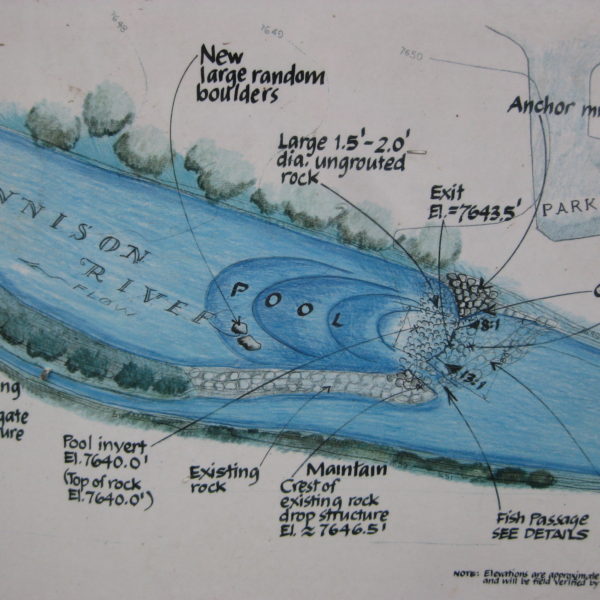 7648
7649
7650
New
large random
boulders
Large 1.5'-2.0'
dia. ungrouted
rock
Anchor
Exit
El.=7643.5'
PARK
NNISON
RIVER
FLOW
POOL
8:1
13:1
ng
gate
ure
Pool invert
El.7640.0'
(Top of rock
El.7640.0')
Existing
rock
Maintain
Crest of
existing rock
drop structure
El. ≈ 7646.5'
Fish Passage
SEE DETAILS
NOTE: Elevations are approximate
and will be field verified by